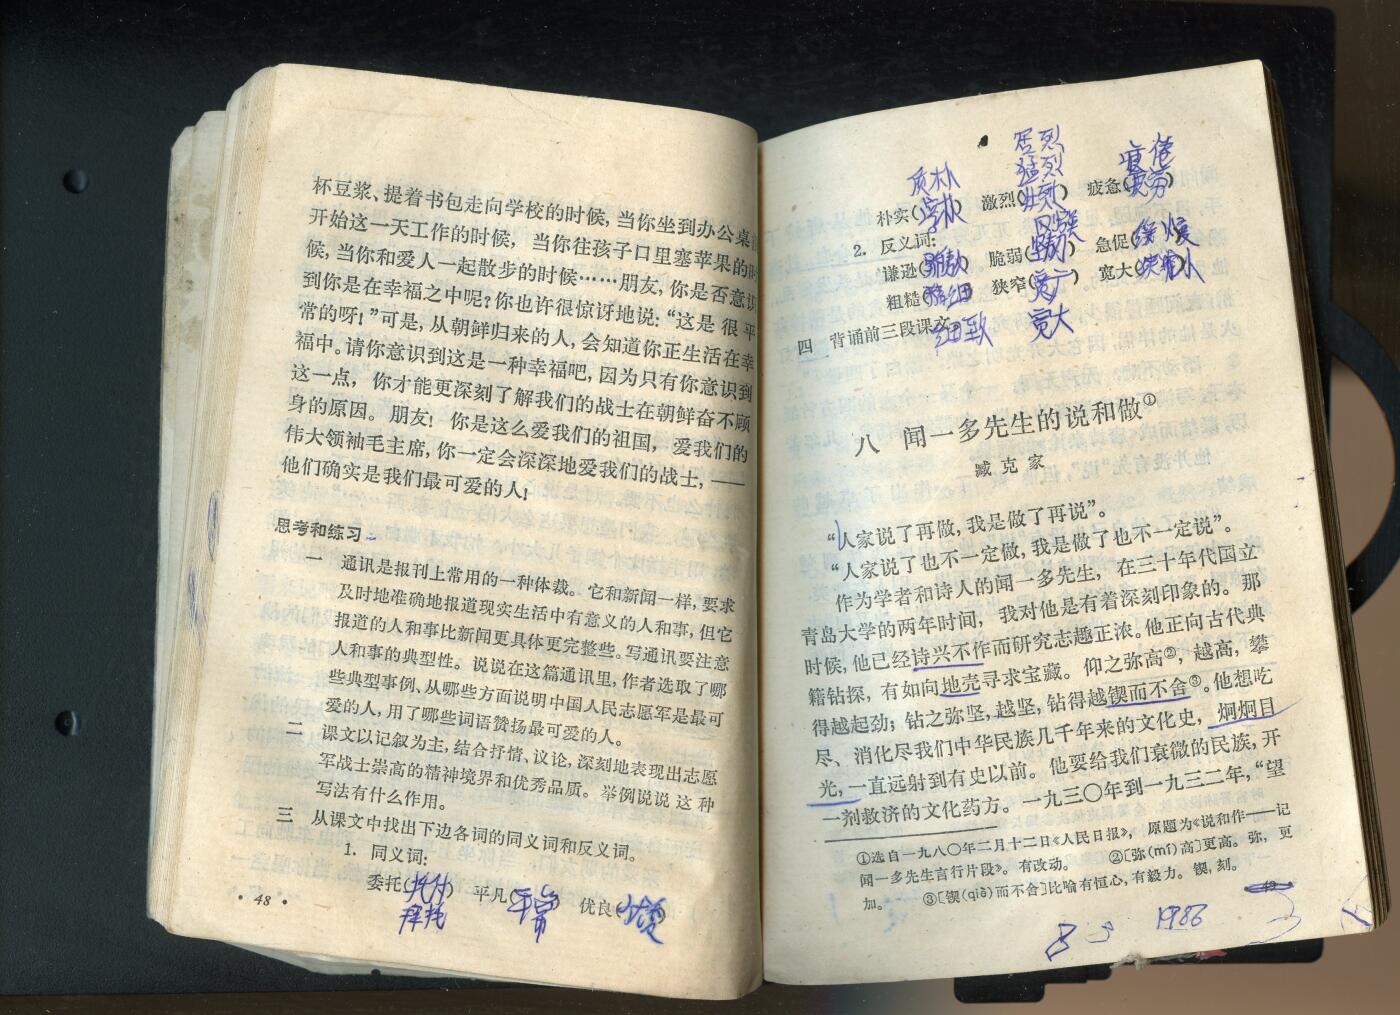 杯豆浆、提着书包走向学校的时候，当你坐到办公桌
开始这一天工作的时候，当你往孩子口里塞苹果的时
候，当你和爱人一起散步的时候……朋友，你是否意识
到你是在幸福之中呢？你也许很惊讶地说：“这是很平
常的呀！”可是，从朝鲜归来的人，会知道你正生活在幸
福中。请你意识到这是一种幸福吧，因为只有你意识到
这一点，你才能更深刻了解我们的战士在朝鲜奋不顾
身的原因。朋友！你是这么爱我们的祖国，爱我们的
伟大领袖毛主席，你一定会深深地爱我们的战士，——
他们确实是我们最可爱的人！
思考和练习
一 通讯是报刊上常用的一种体裁。它和新闻一样，要求
及时地准确地报道现实生活中有意义的人和事，但它
报道的人和事比新闻更具体更完整些。写通讯要注意
人和事的典型性。说说在这篇通讯里，作者选取了哪
些典型事例、从哪些方面说明中国人民志愿军是最可
爱的人，用了哪些词语赞扬最可爱的人。
二 课文以记叙为主，结合抒情、议论，深刻地表现出志愿
军战士崇高的精神境界和优秀品质。举例说说这种
写法有什么作用。
三 从课文中找出下边各词的同义词和反义词。
1. 同义词：
委托（托付） 平凡（平常） 优良（ ）
拜托
· 48 ·
质朴 猛烈 疲倦
朴实（ ） 激烈（壮烈） 疲惫（ ）
2. 反义词：
谦逊（骄傲） 脆弱（坚韧） 急促（缓慢）
粗糙（ ） 狭窄（宽广） 宽大（狭小）
细致 宽大
四 背诵前三段课文。
八 闻一多先生的说和做①
臧克家
“人家说了再做，我是做了再说”。
“人家说了也不一定做，我是做了也不一定说”。
作为学者和诗人的闻一多先生，在三十年代国立
青岛大学的两年时间，我对他是有着深刻印象的。那
时候，他已经诗兴不作而研究志趣正浓。他正向古代典
籍钻探，有如向地壳寻求宝藏。仰之弥高②，越高，攀
得越起劲；钻之弥坚，越坚，钻得越锲而不舍③。他想吃
尽、消化尽我们中华民族几千年来的文化史，炯炯目
光，一直远射到有史以前。他要给我们衰微的民族，开
一剂救济的文化药方。一九三〇年到一九三二年，“望
①选自一九八〇年二月十二日《人民日报》，原题为《说和作——记
闻一多先生言行片段》。有改动。 ②〔弥（mí）高〕更高。弥，更
加。 ③〔锲（qiè）而不舍〕比喻有恒心，有毅力。锲，刻。
49
1986